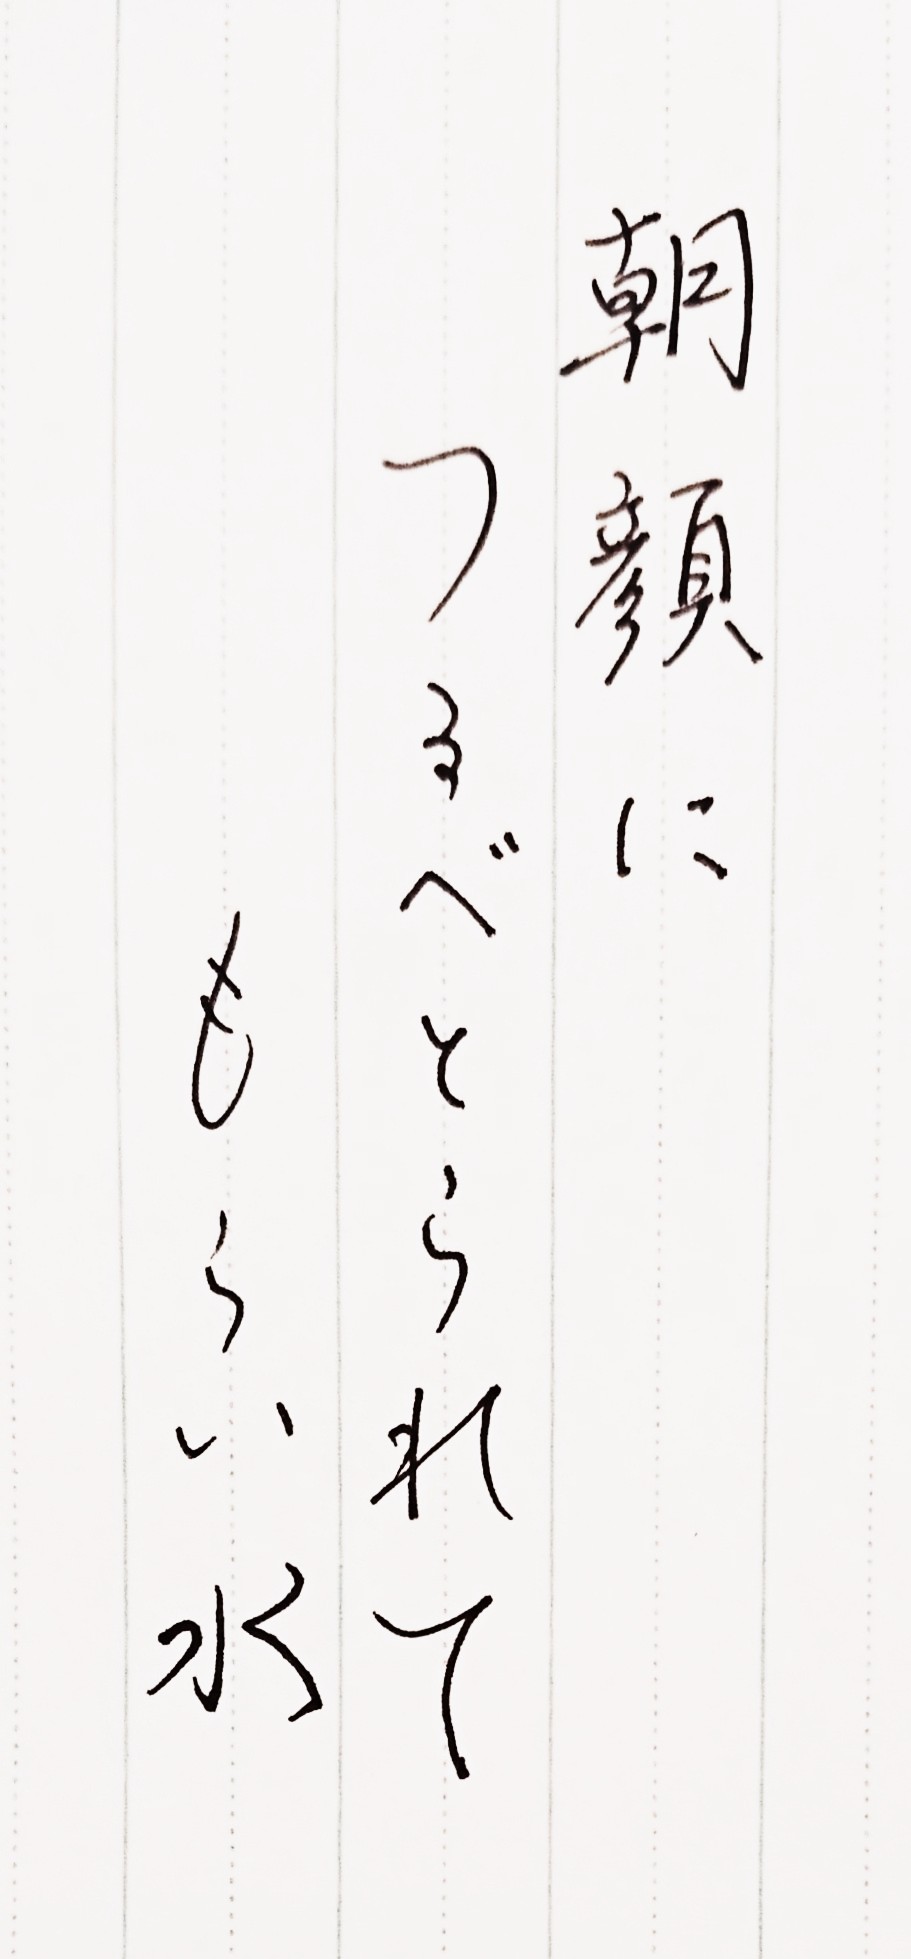 朝顔に
つるべとられて
もらい水